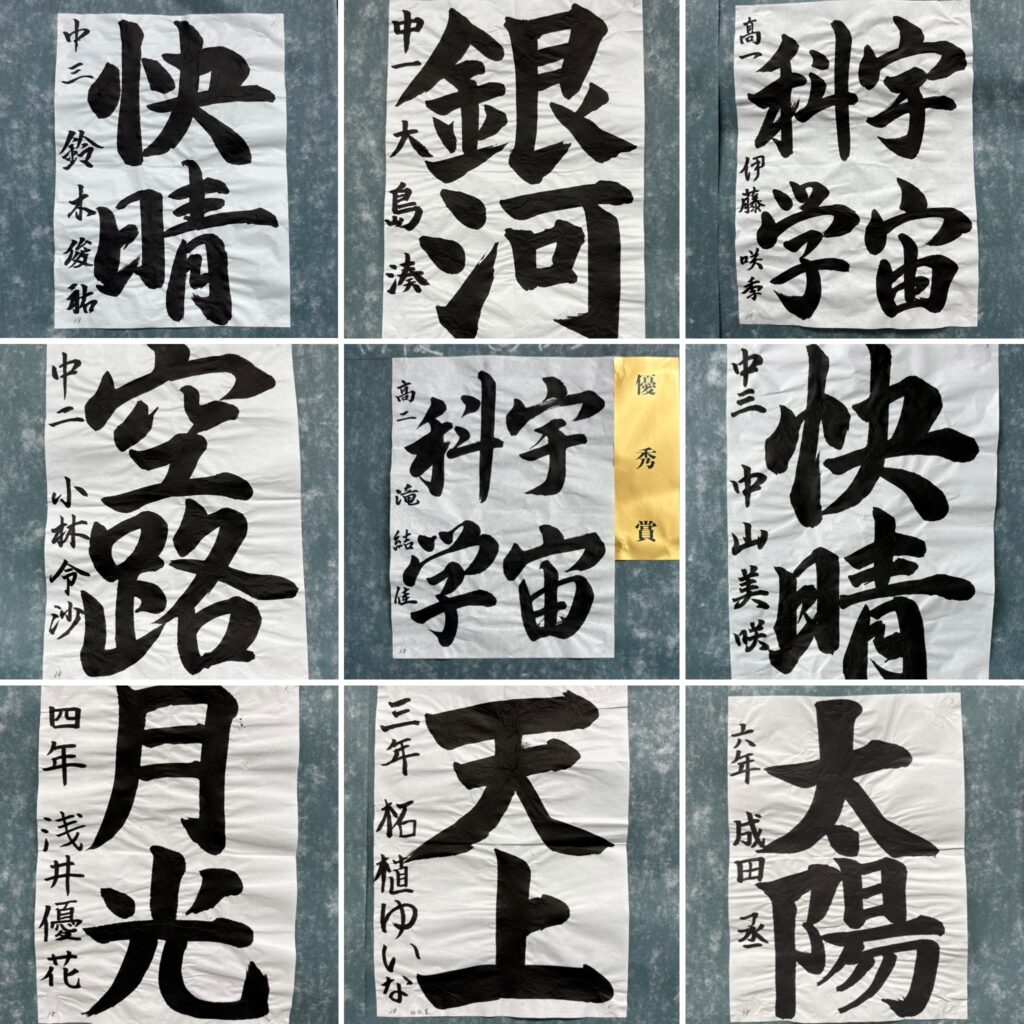 快晴
中三 鈴木俊祐
銀河
中一 大島湊
宇宙
科学
高一 伊藤咲季
空路
中二 小林令沙
優秀賞
宇宙
科学
高二 滝結佳
快晴
中三 中山美咲
月光
四年 浅井優花
天上
三年 柘植ゆいな
太陽
六年 成田丞